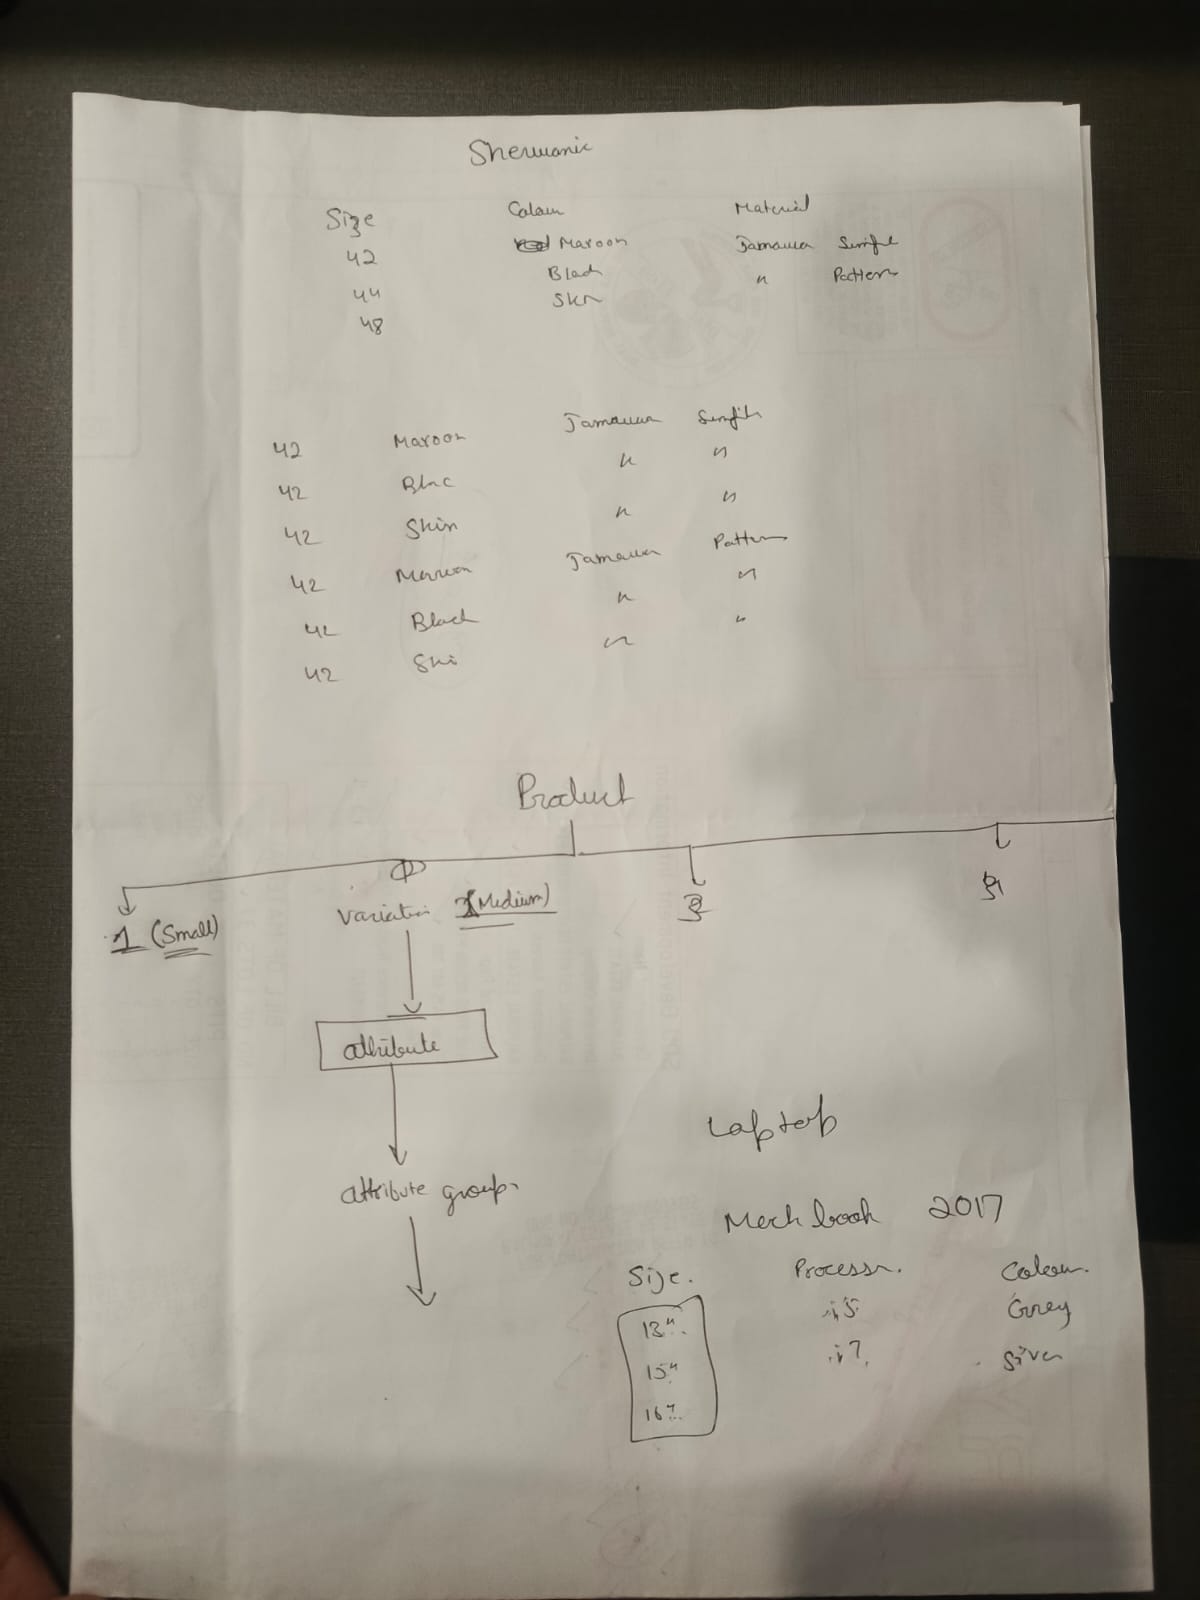 Sherwanie
Size Colour Material
42 Maroon Jamawar Simple
44 Black " Pattern
48 Skn
42 Maroon Jamawar
42 Blac " "
42 Skin " "
42 Maroon Jamawar Pattern
42 Black " "
42 Ski " "
Product
1 (Small) Variation (Medium)
attribute
attribute group
Laptop
Mech book 2017
Size. Processr. Colour.
13" i5 Grey
15" i7 Silver
16"